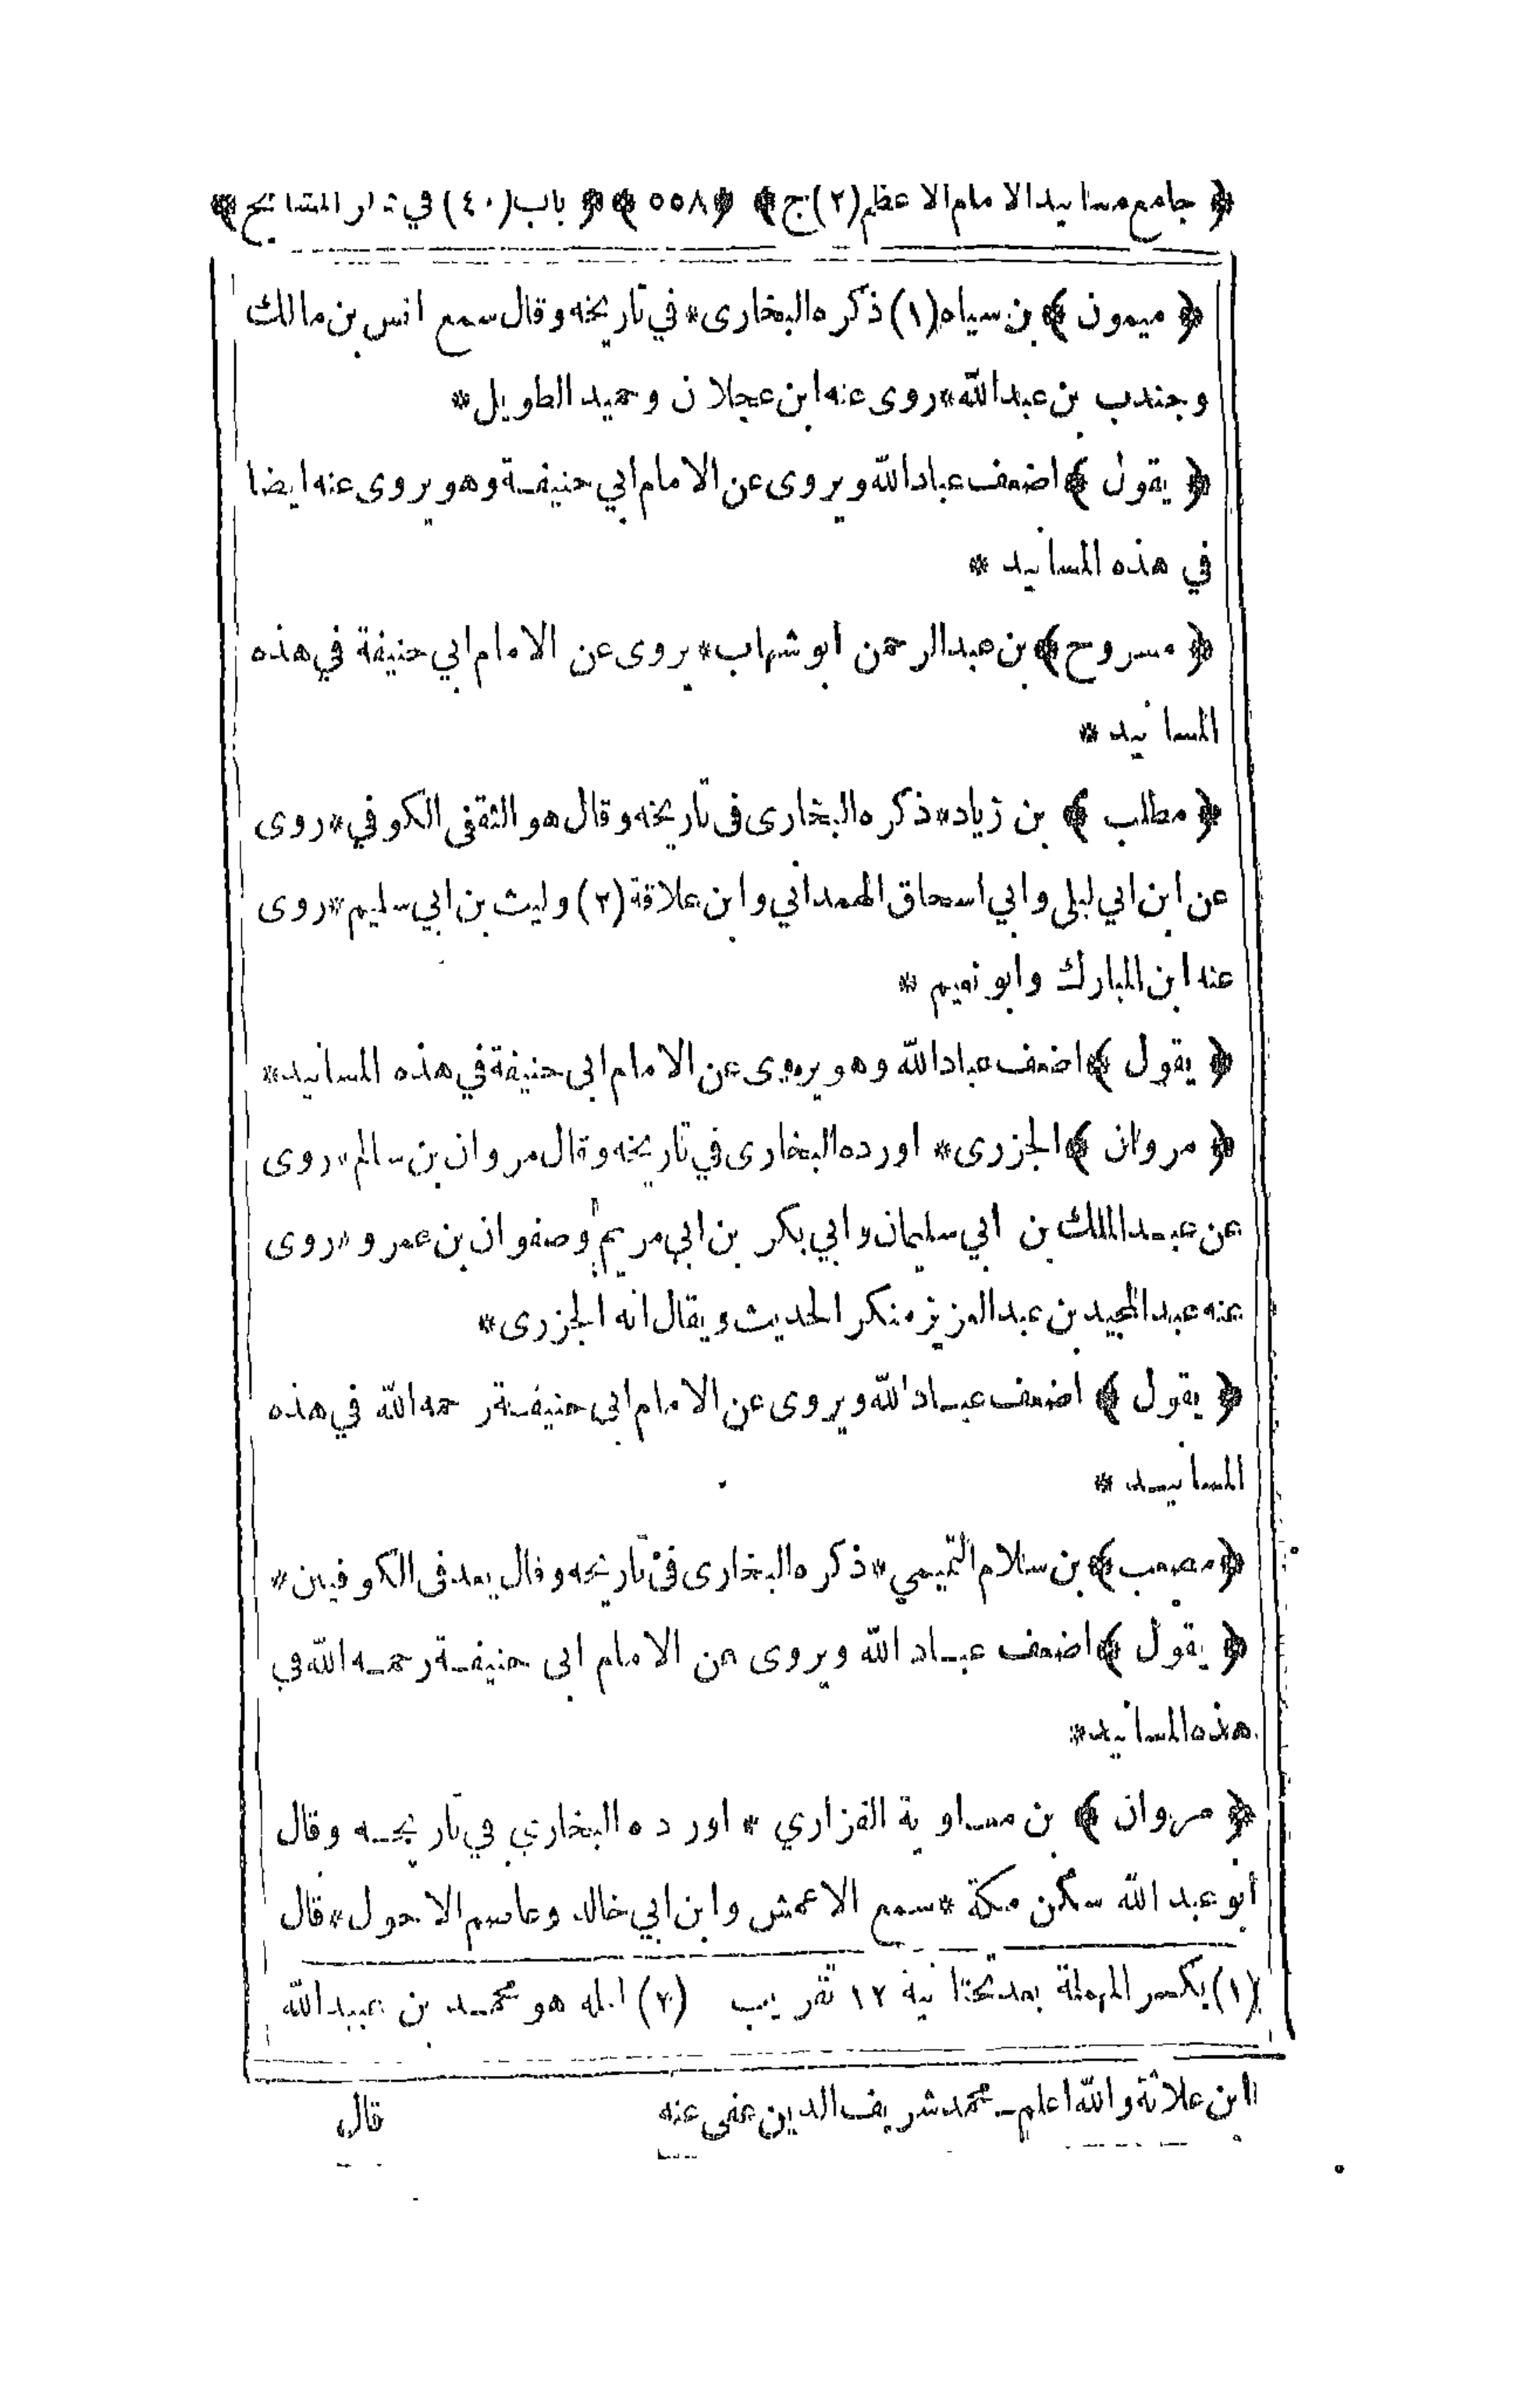 ﴿ جامع مسانيد الامام الاعظم (٢) ج ﴾ ﴿ ٥٥٨ ﴾ ﴿ باب (٤٠) في المشائخ ﴾
﴿ ميمون ﴾ بن سياه (١) ذكره البخارى * في تاريخه وقال سمع انس بن مالك
وجندب بن عبد الله * روى عنه ابن عجلان وحميد الطويل *
﴿ يقول ﴾ اضعف عباد الله ويروى عن الامام ابي حنيفة وهو يروى عنه ايضا
في هذه المسانيد *
﴿ مسروح ﴾ بن عبد الرحمن ابو شهاب * يروى عن الامام ابي حنيفة في هذه
المسانيد *
﴿ مطلب ﴾ بن زياد * ذكره البخارى فى تاريخه وقال هو الثقفى الكوفي * روى
عن ابن ابي ليلى وابي اسحاق الهمداني وابن علاقة (٢) وليث بن ابي سليم * روى
عنه ابن المبارك وابو نعيم *
﴿ يقول ﴾ اضعف عباد الله وهو يروى عن الامام ابى حنيفة في هذه المسانيد *
﴿ مروان ﴾ الجزرى * اورده البخارى في تاريخه وقال مروان بن سالم * روى
عن عبد الملك بن ابي سليمان وابي بكر بن ابي مريم وصفوان بن عمرو * روى
عنه عبد المجيد بن عبد العزيز منكر الحديث ويقال انه الجزرى *
﴿ يقول ﴾ اضعف عباد الله ويروى عن الامام ابى حنيفة رحمه الله في هذه
المسانيد *
﴿ مصعب ﴾ بن سلام التميمي * ذكره البخارى فى تاريخه وقال يعد فى الكوفيين *
﴿ يقول ﴾ اضعف عباد الله ويروى عن الامام ابى حنيفة رحمه الله في
هذه المسانيد *
﴿ مروان ﴾ بن معاوية الفزاري * اورده البخاري في تاريخه وقال
أبو عبد الله سكن مكة * سمع الاعمش وابن ابي خالد وعاصم الاحول * قال
(١) بكسر المهملة بعد تحتانية ١٢ تقريب (٢) لعله هو محمد بن عبيد الله
ابن علاثة والله اعلم ـ محمد شريف الدين عفى عنه
قال